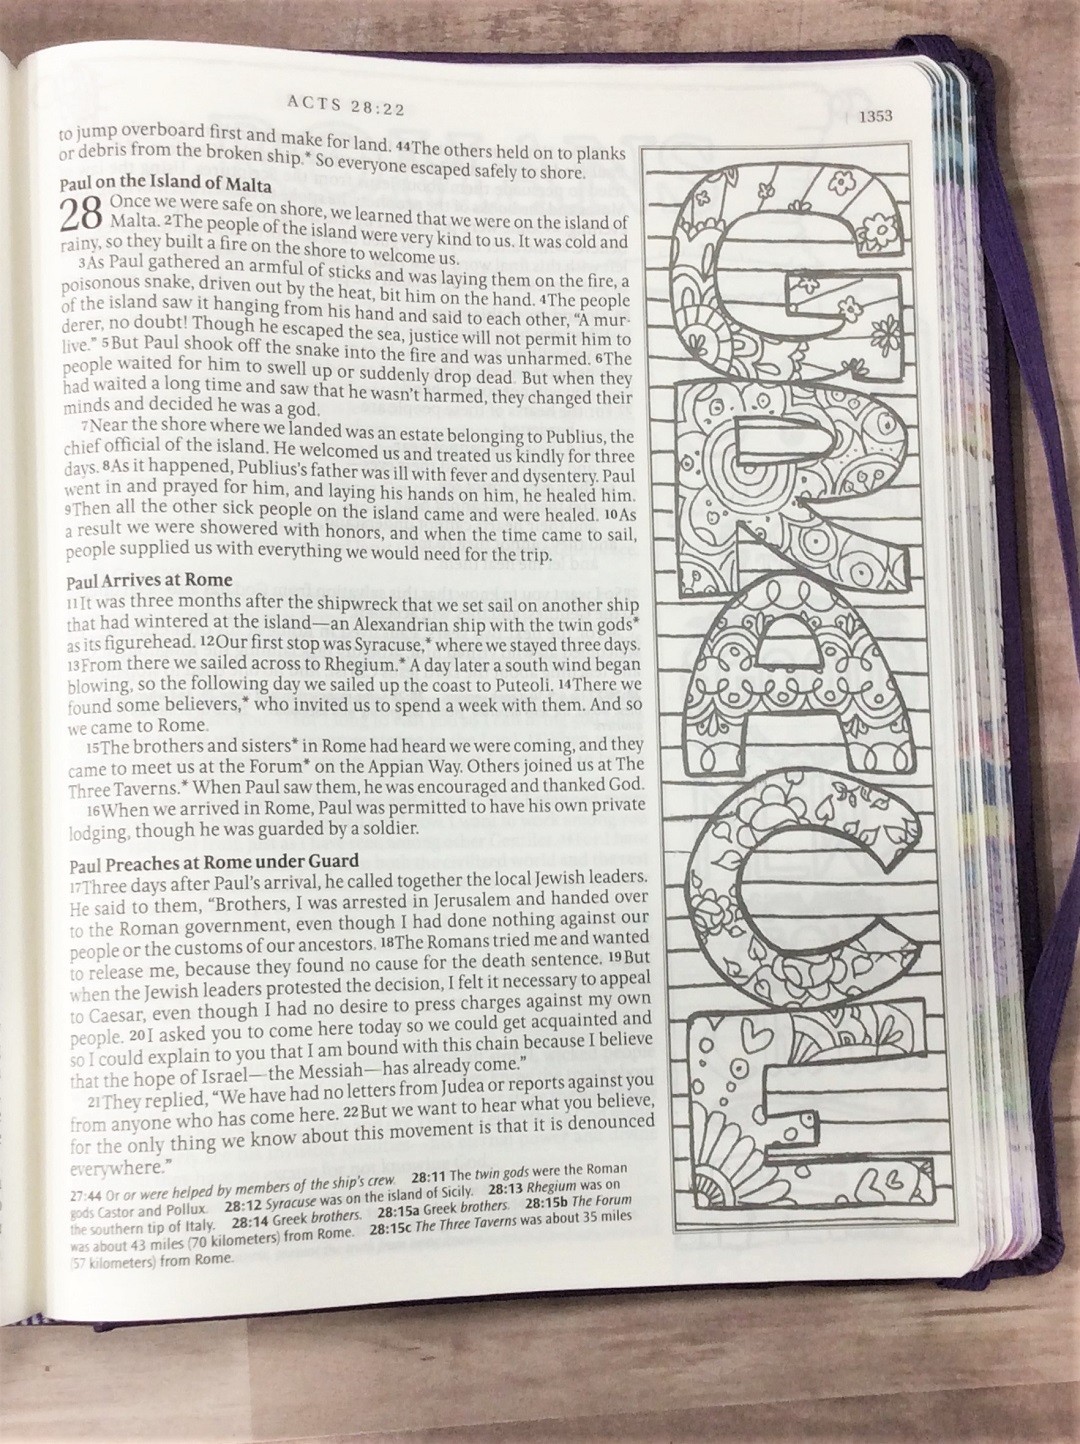 ACTS 28:22
1353
to jump overboard first and make for land. 44The others held on to planks
or debris from the broken ship.* So everyone escaped safely to shore.
Paul on the Island of Malta
28 Once we were safe on shore, we learned that we were on the island of
Malta. 2The people of the island were very kind to us. It was cold and
rainy, so they built a fire on the shore to welcome us.
3As Paul gathered an armful of sticks and was laying them on the fire, a
poisonous snake, driven out by the heat, bit him on the hand. 4The people
of the island saw it hanging from his hand and said to each other, “A mur-
derer, no doubt! Though he escaped the sea, justice will not permit him to
live.” 5But Paul shook off the snake into the fire and was unharmed. 6The
people waited for him to swell up or suddenly drop dead. But when they
had waited a long time and saw that he wasn't harmed, they changed their
minds and decided he was a god.
7Near the shore where we landed was an estate belonging to Publius, the
chief official of the island. He welcomed us and treated us kindly for three
days. 8As it happened, Publius's father was ill with fever and dysentery. Paul
went in and prayed for him, and laying his hands on him, he healed him.
9Then all the other sick people on the island came and were healed. 10As
a result we were showered with honors, and when the time came to sail,
people supplied us with everything we would need for the trip.
Paul Arrives at Rome
11It was three months after the shipwreck that we set sail on another ship
that had wintered at the island—an Alexandrian ship with the twin gods*
as its figurehead. 12Our first stop was Syracuse,* where we stayed three days.
13From there we sailed across to Rhegium.* A day later a south wind began
blowing, so the following day we sailed up the coast to Puteoli. 14There we
found some believers,* who invited us to spend a week with them. And so
we came to Rome.
15The brothers and sisters* in Rome had heard we were coming, and they
came to meet us at the Forum* on the Appian Way. Others joined us at The
Three Taverns.* When Paul saw them, he was encouraged and thanked God.
16When we arrived in Rome, Paul was permitted to have his own private
lodging, though he was guarded by a soldier.
Paul Preaches at Rome under Guard
17Three days after Paul's arrival, he called together the local Jewish leaders.
He said to them, “Brothers, I was arrested in Jerusalem and handed over
to the Roman government, even though I had done nothing against our
people or the customs of our ancestors. 18The Romans tried me and wanted
to release me, because they found no cause for the death sentence. 19But
when the Jewish leaders protested the decision, I felt it necessary to appeal
to Caesar, even though I had no desire to press charges against my own
people. 20I asked you to come here today so we could get acquainted and
so I could explain to you that I am bound with this chain because I believe
that the hope of Israel—the Messiah—has already come.”
21They replied, “We have had no letters from Judea or reports against you
from anyone who has come here. 22But we want to hear what you believe,
for the only thing we know about this movement is that it is denounced
everywhere.”
27:44 Or or were helped by members of the ship's crew. 28:11 The twin gods were the Roman
gods Castor and Pollux. 28:12 Syracuse was on the island of Sicily. 28:13 Rhegium was on
the southern tip of Italy. 28:14 Greek brothers. 28:15a Greek brothers. 28:15b The Forum
was about 43 miles (70 kilometers) from Rome. 28:15c The Three Taverns was about 35 miles
(57 kilometers) from Rome.
GRACE